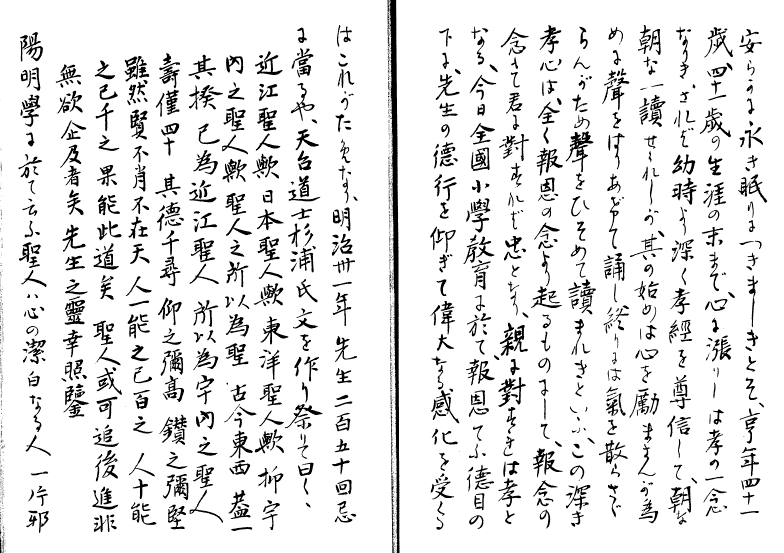 安らかに永き眠りにつきましきとぞ、享年四十一
歳、四十一歳の生涯の末まで、心に漲りしは孝の一念
なりき、されば幼時より深く孝經を尊信して、朝な
朝な一讀せられしが、其の始めは心を勵まさんが為
めに聲をはりあげて誦し、終りには氣を散らさざ
らんがため聲をひそめて讀まれきといふ、この深き
孝心は、全く報恩の念より起るものにして、報念の
念さて君に對すれば忠となり、親に對すれば孝と
なる、今日全國小學教育に於て報恩てふ德目の
下に、先生の德行を仰ぎて偉大なる感化を受くる
はこれがためなり、明治卅一年先生二百五十回忌
に當るや、天台道士杉浦氏文を作り祭りて曰く、
近江聖人歟日本聖人歟東洋聖人歟抑宇
内之聖人歟聖人之所以為聖古今東西蓋一
其揆已為近江聖人所以為宇內之聖人
壽僅四十其德千尋仰之彌高鑚之彌堅
雖然賢不肖不在天人一能之己百之人十能
之己千之果能此道矣聖人或可追後進非
無欲企及者矣先生之靈幸照鑒
陽明學に於て云ふ聖人は心の潔白なる人一片邪